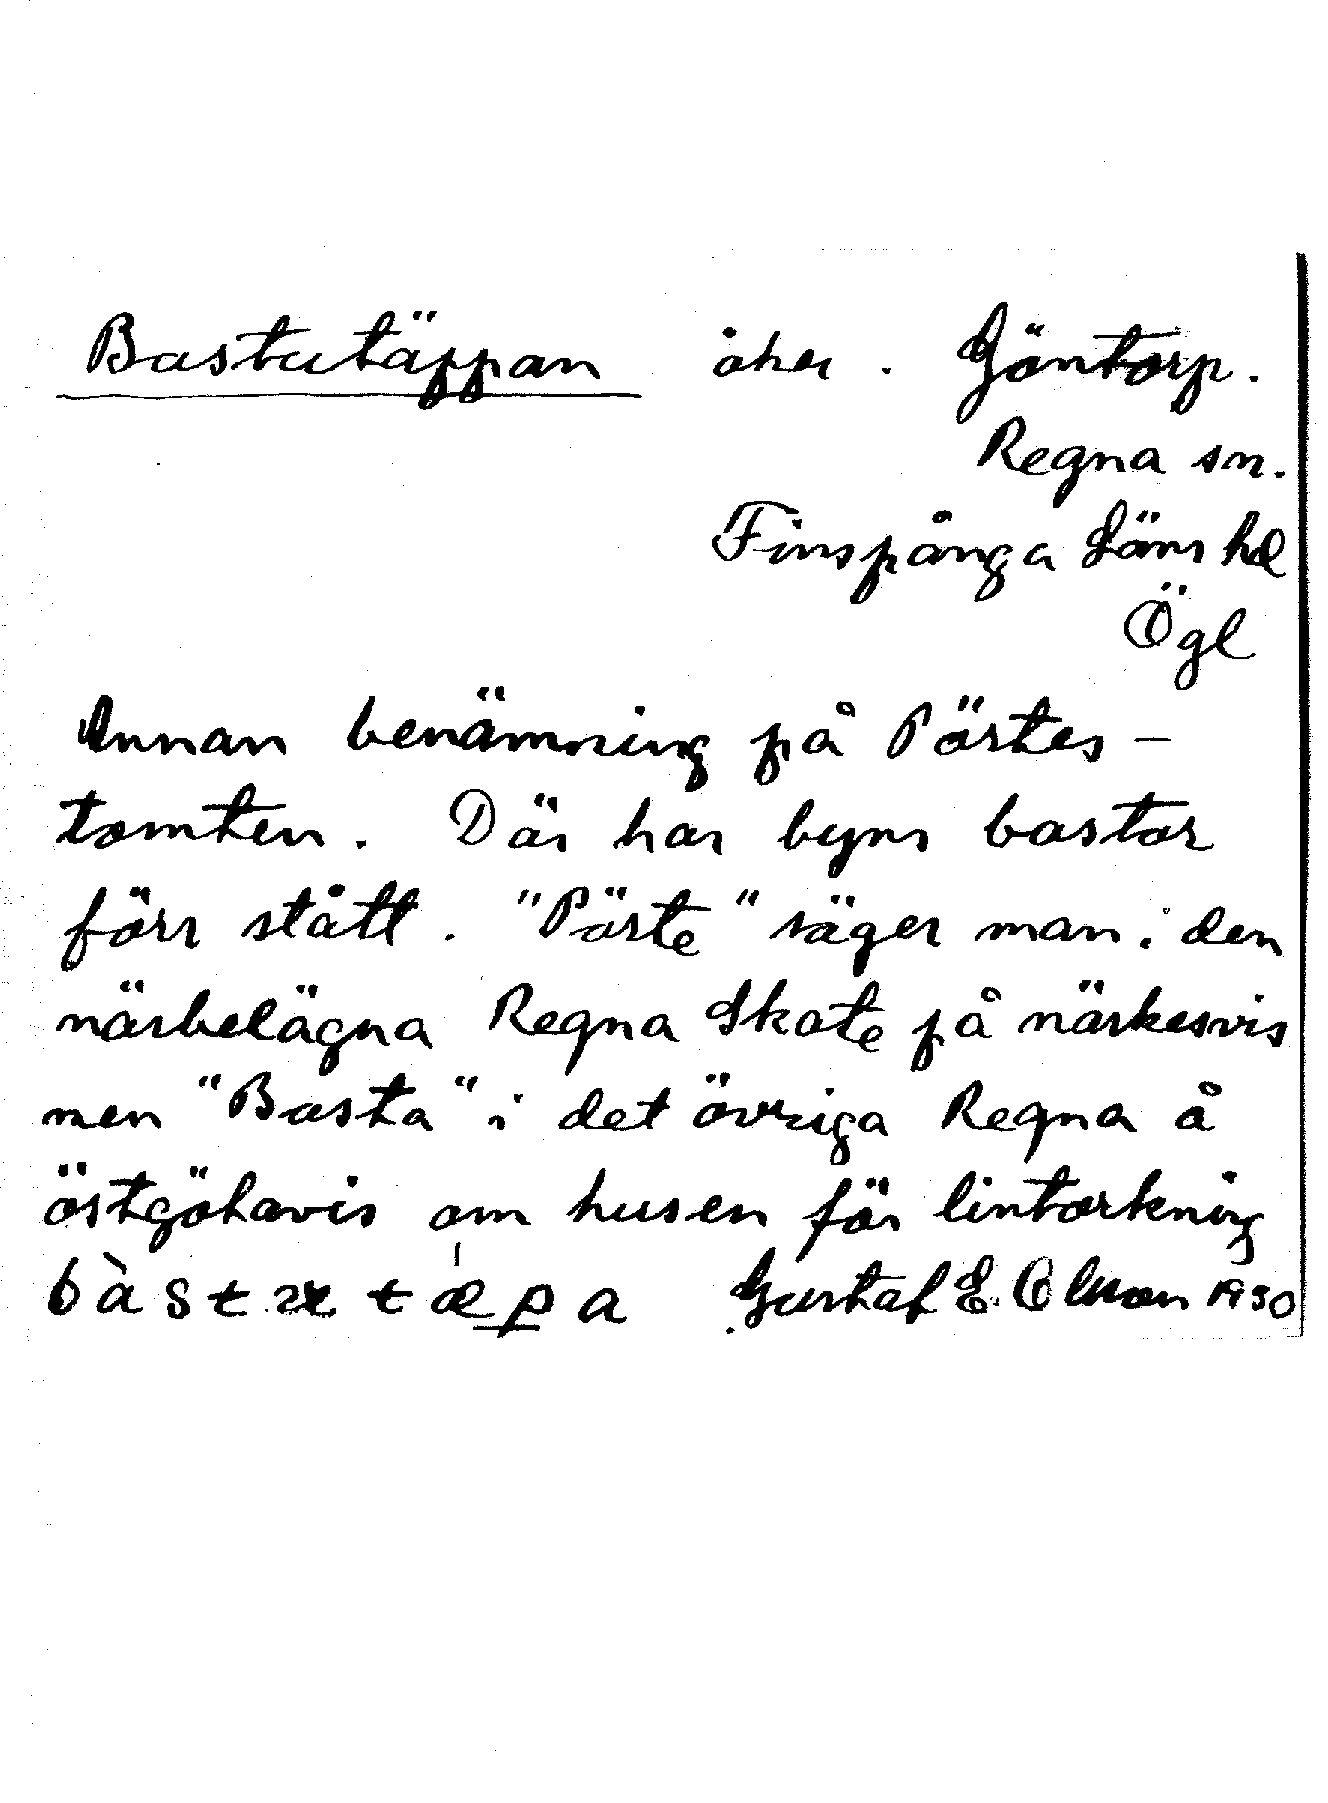 Bastutäppan åker. Göntorp.
Regna sn.
Finspånga Läns hd
Ögl
Annan benämning på Pörtes-
tomten. Där har byns bastor
förr stått. "Pörte" säger man i den
närbelägna Regna Skate på närkesvis
men "Basta" i det övriga Regna å
östgötavis om husen för lintorkning
Gustaf E. Olsson 1930